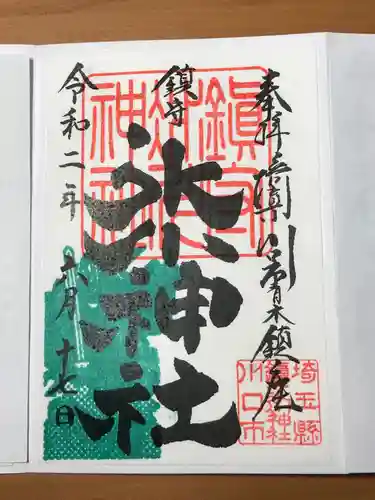 奉拝
川口市青木鎮座
鎮守
氷川神社
令和二年
六月十七日
鎮守
氷川
神社
埼玉縣
川口市